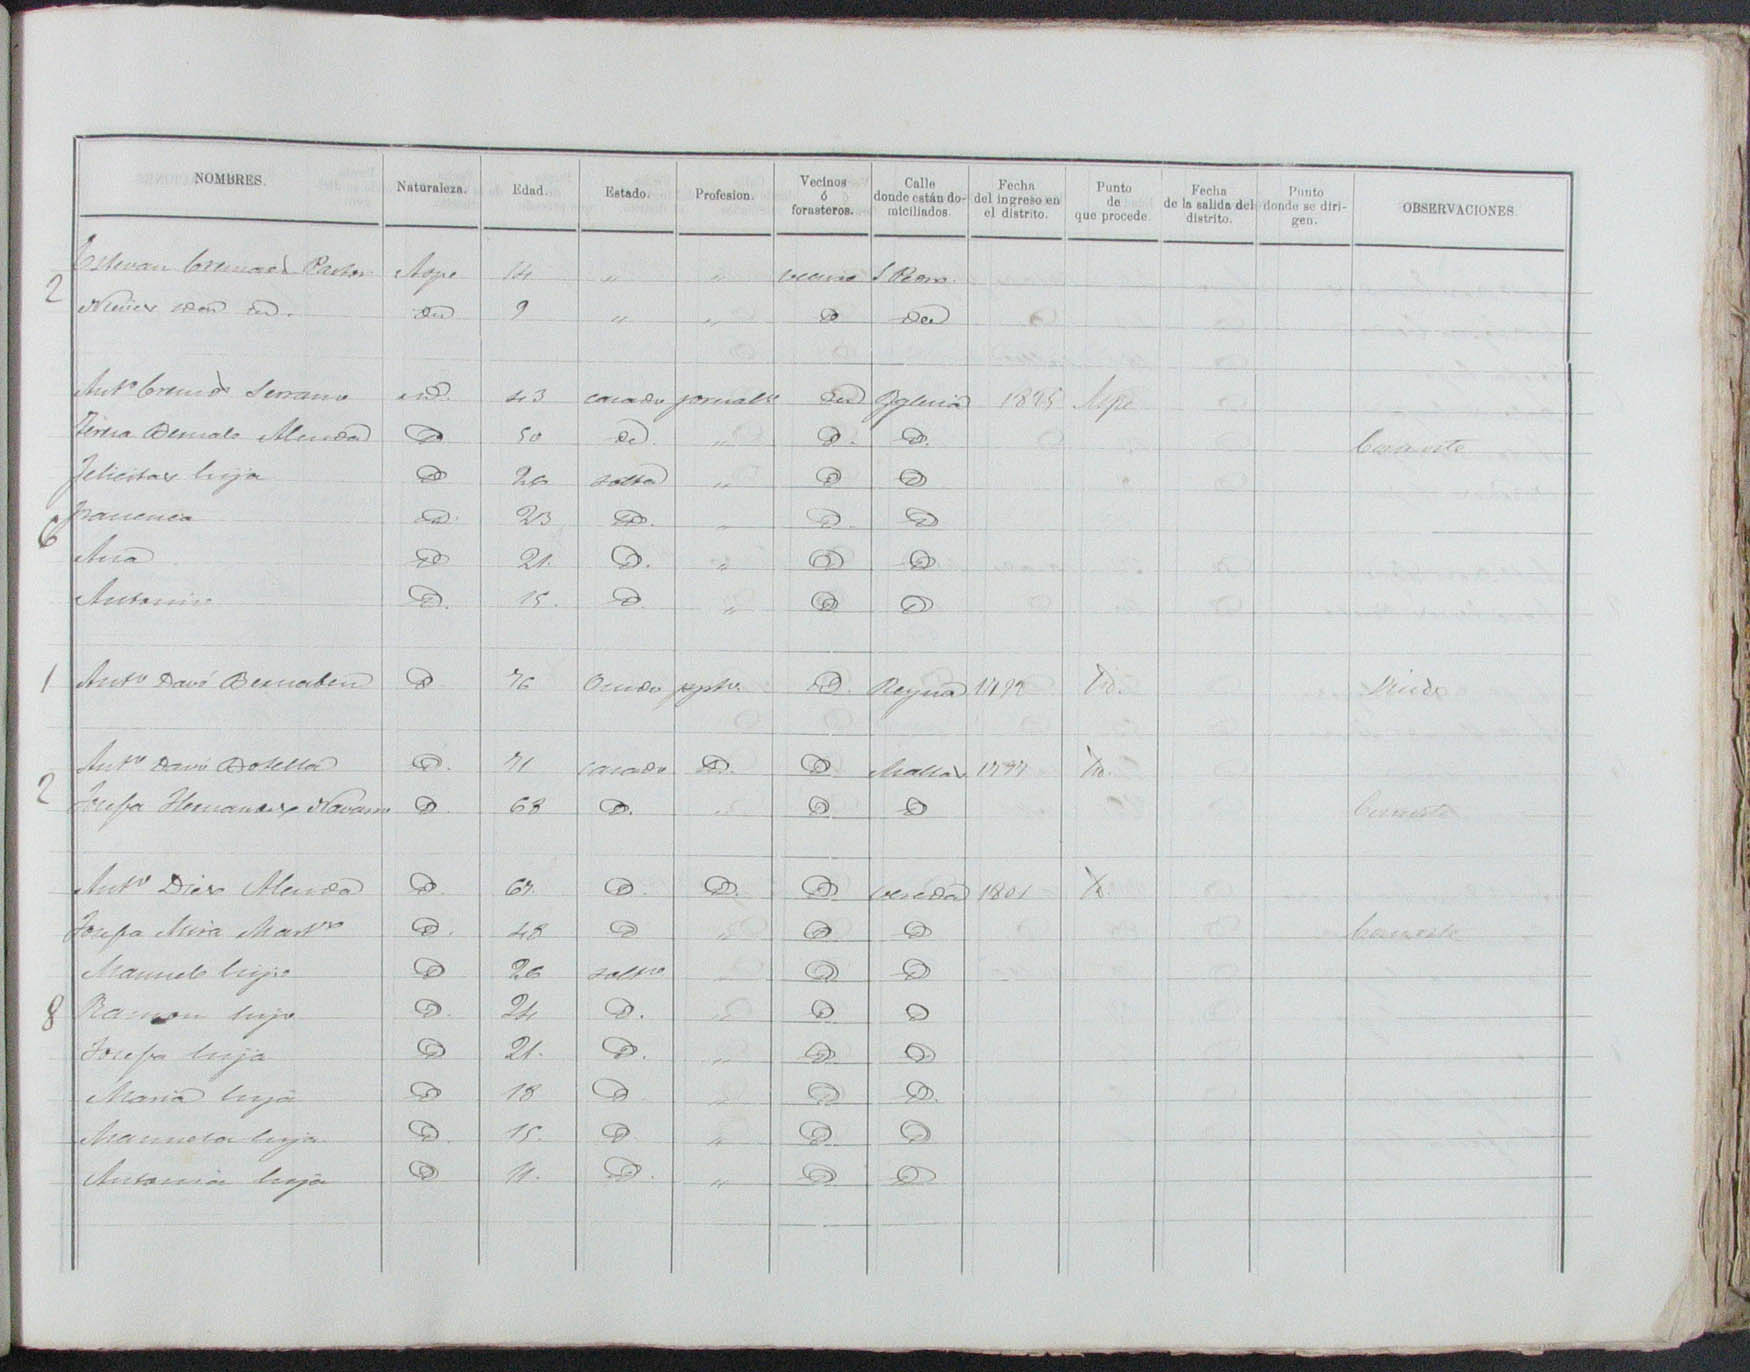 NOMBRES. Naturaleza. Edad. Estado. Profesion. Vecinos ó forasteros. Calle donde están domiciliados. Fecha del ingreso en el distrito. Punto de que procede. Fecha de la salida del distrito. Punto donde se dirigen. OBSERVACIONES.
Estevan Cremads Pastor Aspe 14 " " vecino S Pedro
2 idem id. id 9 " " D id
Antº Cremds Serrano id. 43 casado jornalº id Yglesia 1825 Aspe
Teresa Bernals Alenda D 50 id. " D. D. Consorte
Felicitas hija D 26 soltª " D D
6 Francisca D. 23 D. " D. D
Ana D 21. D. " D D
Antonio D. 15. D. " D D
1 Antº Davó Bernabeu D 76 viudo D. Reyna 1792 id. Viudo
Antº Davó Botella D. 71 casado D. D 1797 id.
2 Josefa Hernandez Navarro D 68 D. " D. D Consorte
Antº Diez Alenda D. 67 D. D. D. vereda 1801 id.
Josefa Mira Martz D. 48 D " D. D Consorte
Manuel hijo D 26 soltº " D D
8 Ramon hijo D. 24 D. " D D
Josefa hija D 21. D. " D D
Maria hija D 18 D " D D.
Manuela hija D. 15. D " D D
Antonia hija D 11. D. " D D